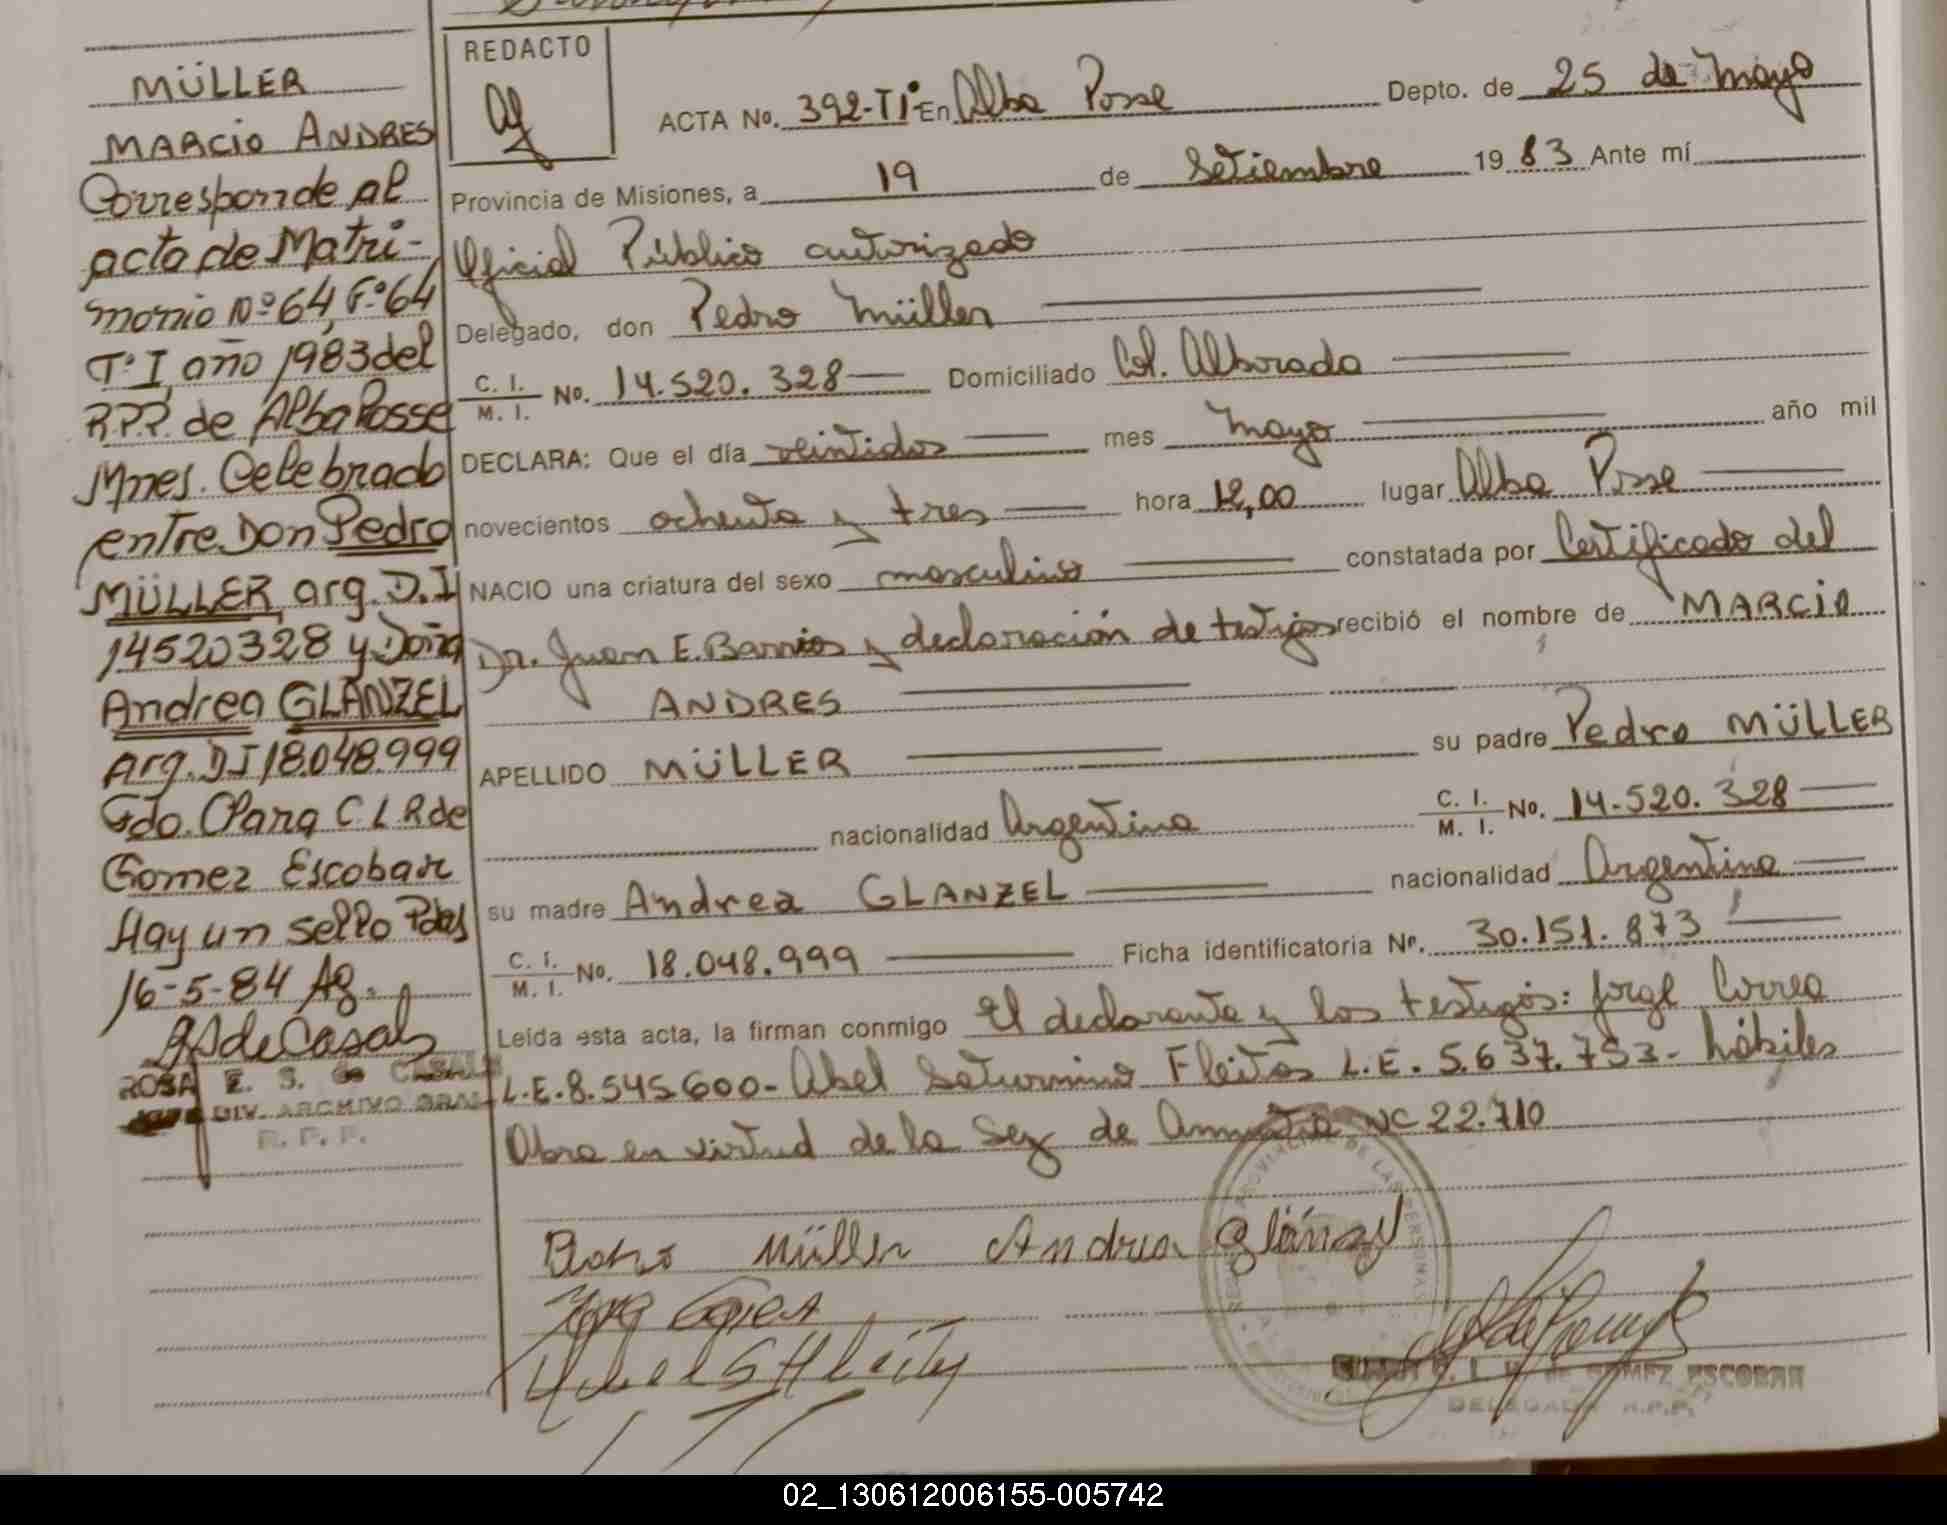 MÜLLER
MARCIO ANDRES
Corresponde al
acta de Matri-
monio Nº 64, Fº 64
Tº I, año 1983 del
R.P.P. de Alba Posse
Mnes. Celebrado
entre Don Pedro
MÜLLER, arg. D.I
14520328 y Doña
Andrea GLANZEL
Arg. DI 18.048.999
Fdo. Clara C L R de
Gomez Escobar
Hay un sello Pdas
16-5-84 Ag.
ROSA E. S. de CASALS
JEFE DIV. ARCHIVO GRAL
R. P. P.
REDACTO
ACTA No. 392-TIº En Alba Posse Depto. de 25 de Mayo
Provincia de Misiones, a 19 de Setiembre 1983 Ante mí
Oficial Público autorizado
Delegado, don Pedro Müller
C. I. / M. I. No. 14.520.328 Domiciliado Col. Alborada
DECLARA: Que el día veintidos mes Mayo año mil
novecientos ochenta y tres hora 12,00 lugar Alba Posse
NACIO una criatura del sexo masculino constatada por Certificado del
Dr. Juan E. Barrios y declaración de testigos recibió el nombre de MARCIO
ANDRES
APELLIDO MÜLLER su padre Pedro MÜLLER
nacionalidad Argentina C. I. / M. I. No. 14.520.328
su madre Andrea GLANZEL nacionalidad Argentina
C. I. / M. I. No. 18.048.999 Ficha identificatoria No. 30.151.873
Leída esta acta, la firman conmigo El declarante y los testigos: Jorge Correa
L.E. 8.545.600- Abel Saturnino Fleitas L.E. 5.637.753- hábiles
Obra en virtud de la Ley de Amnistia 22.710
Müller Andrea Glänzel
GOMEZ ESCOBAR
DELEGADA R.P.P.
02_130612006155-005742